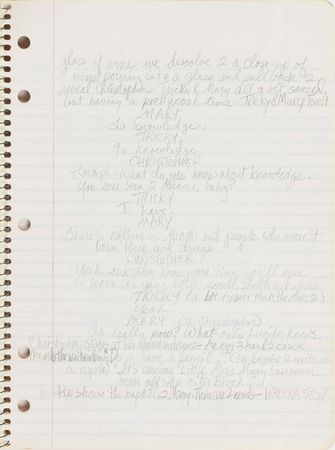 glass of wine we dissolve 2 a close-up of
wine pouring into a glass and pull back 2
reveal Christopher, Tricky & Mary all a bit sauced,
but having a pretty cool time. Tricky & Mary toast
MARY
To knowledge.
TRICKY
To knowledge.
CHRISTOPHER
Hmmph - What do you know about knowledge.
You ever been 2 Miami, baby?
TRICKY
I have.
MARY
There's nothing in MIAMI but people who weren't
born there and drugs.
CHRISTOPHER
Yeah and they know more than you'll ever
learn in your little small sheltered
TRICKY (a bit tipsier than the other 2)
Yeah.
MARY (2 Christopher)
Oh really now? What
Christopher stares at her almost in disgust - Mary 2 hard 2 crack.
Do u have a pencil. (He begins 2 write on
a napkin) It's obvious Little Miss Mary has never
been off the city block.
He shows the napkin 2 Mary. There are 2 words - WRECKA STOW